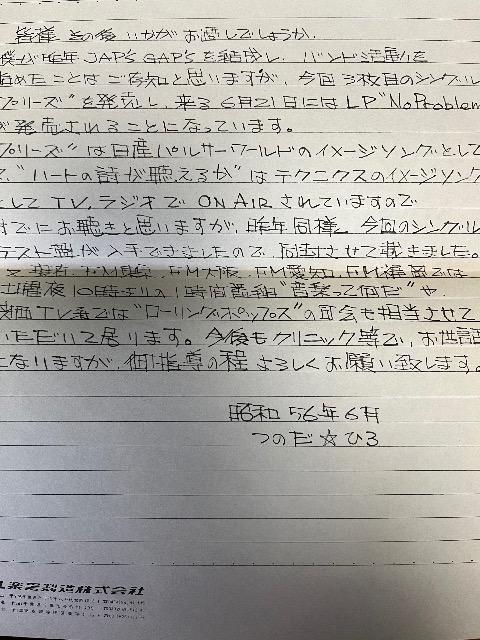 皆様 その後いかがお過しでしょうか.
僕が昨年 JAP'S GAP'Sを結成し、バンド活動を
始めたことはご存知と思いますが、今回3枚目のシングル
プリーズ"を発売し、来る6月21日にはLP"No Problem
が発売されることになっています。
プリーズ"は日産パルサーワールドのイメージソングとして
"ハートの詩が聴えるか"はテクニクスのイメージソング
としてTV.ラジオで ON AIR されていますので
すでにお聴きと思いますが、昨年同様、今回のシングル
テスト盤が入手できましたので、同封させて戴きました。
FM東京. FM大阪. FM愛知. FM福岡では
土曜夜10時よりの1時間番組"音楽って何だ"や
関西TV系では"ローリング・ポップス"の司会も担当させて
いただいて居ります。今後もクリニック等で、お世話
になりますが、御指導の程 よろしくお願い致します。
昭和56年6月
つのだ☆ひろ
楽器製造株式会社